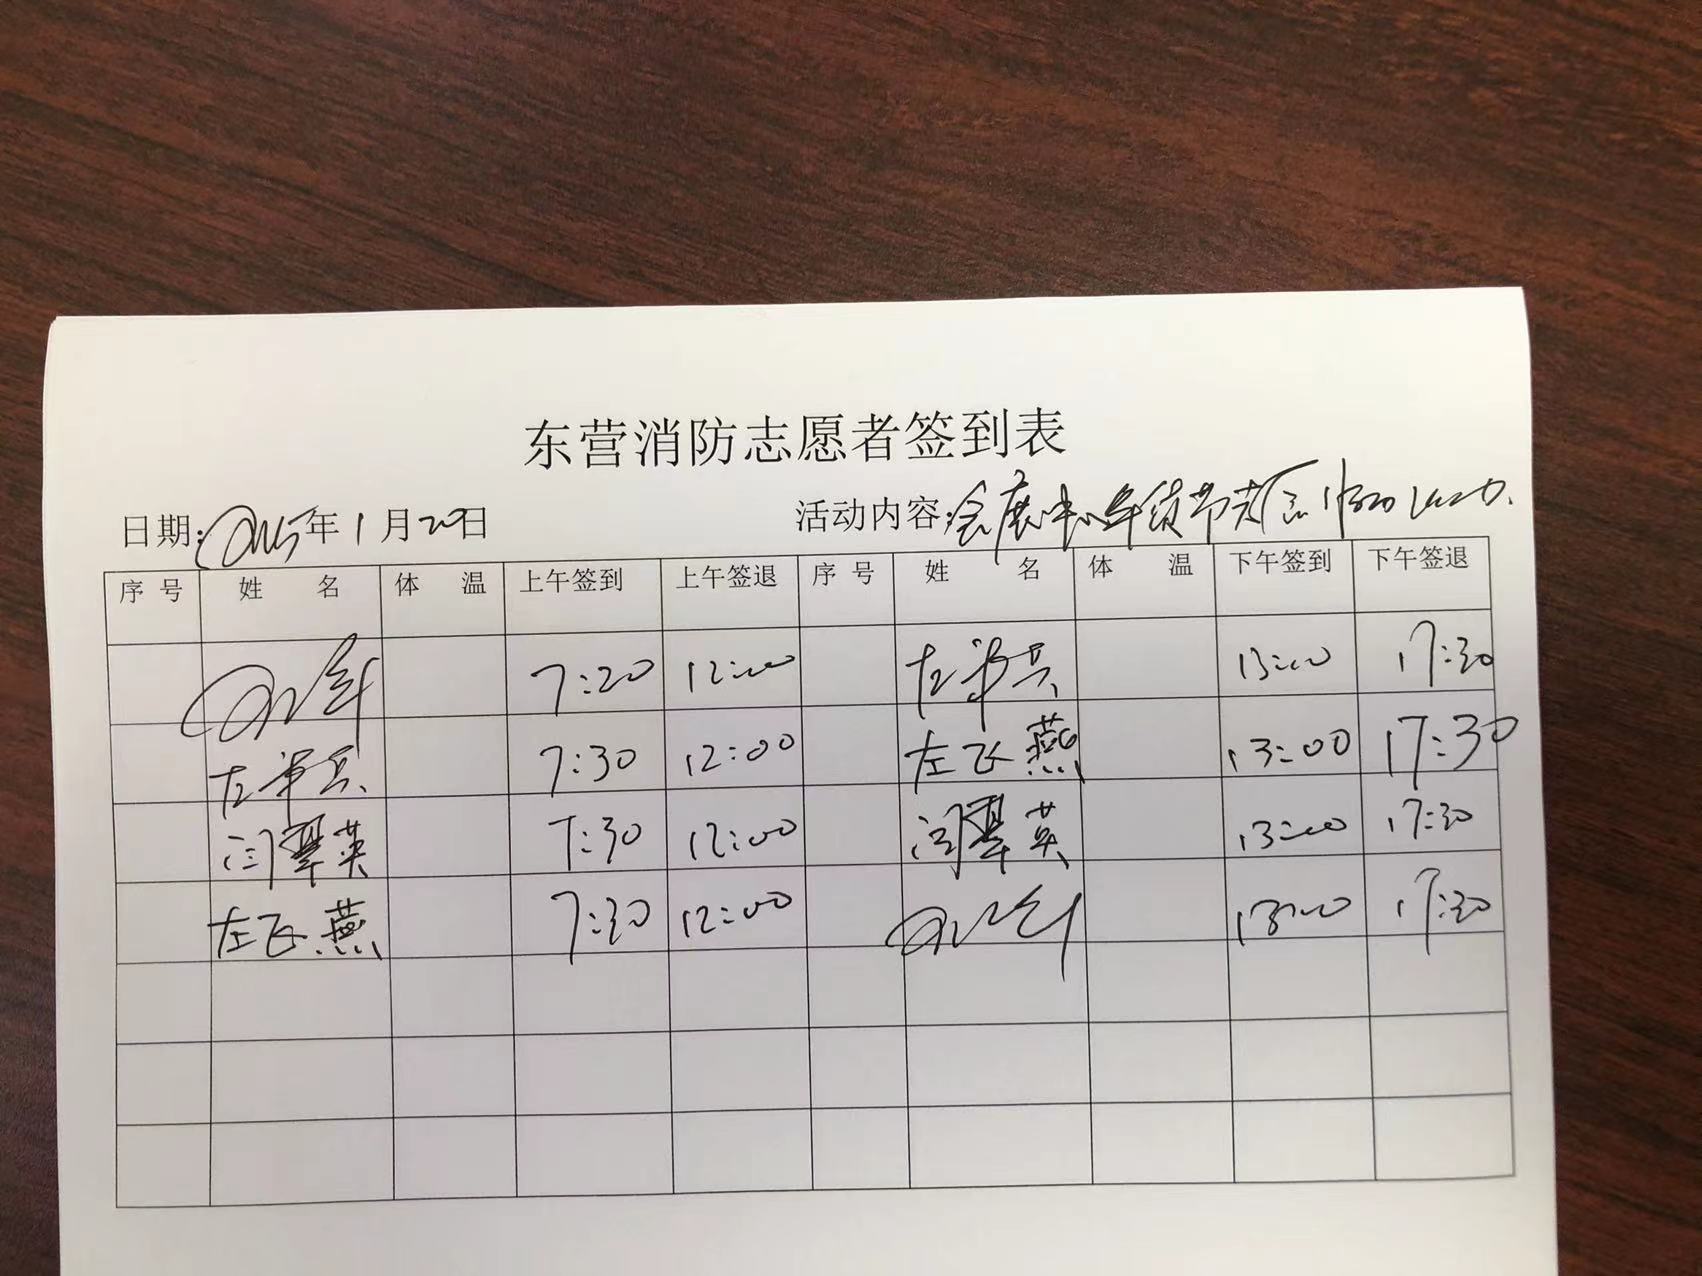 东营消防志愿者签到表
日期: 2025年1月20日 活动内容: 会展中心年货节
序号 姓名 体温 上午签到 上午签退 序号 姓名 体温 下午签到 下午签退
7:20 12:00 左军兵 13:00 17:30
左军兵 7:30 12:00 左飞燕 13:00 17:30
闫翠英 7:30 12:00 闫翠英 13:00 17:30
左飞燕 7:30 12:00 13:00 17:30